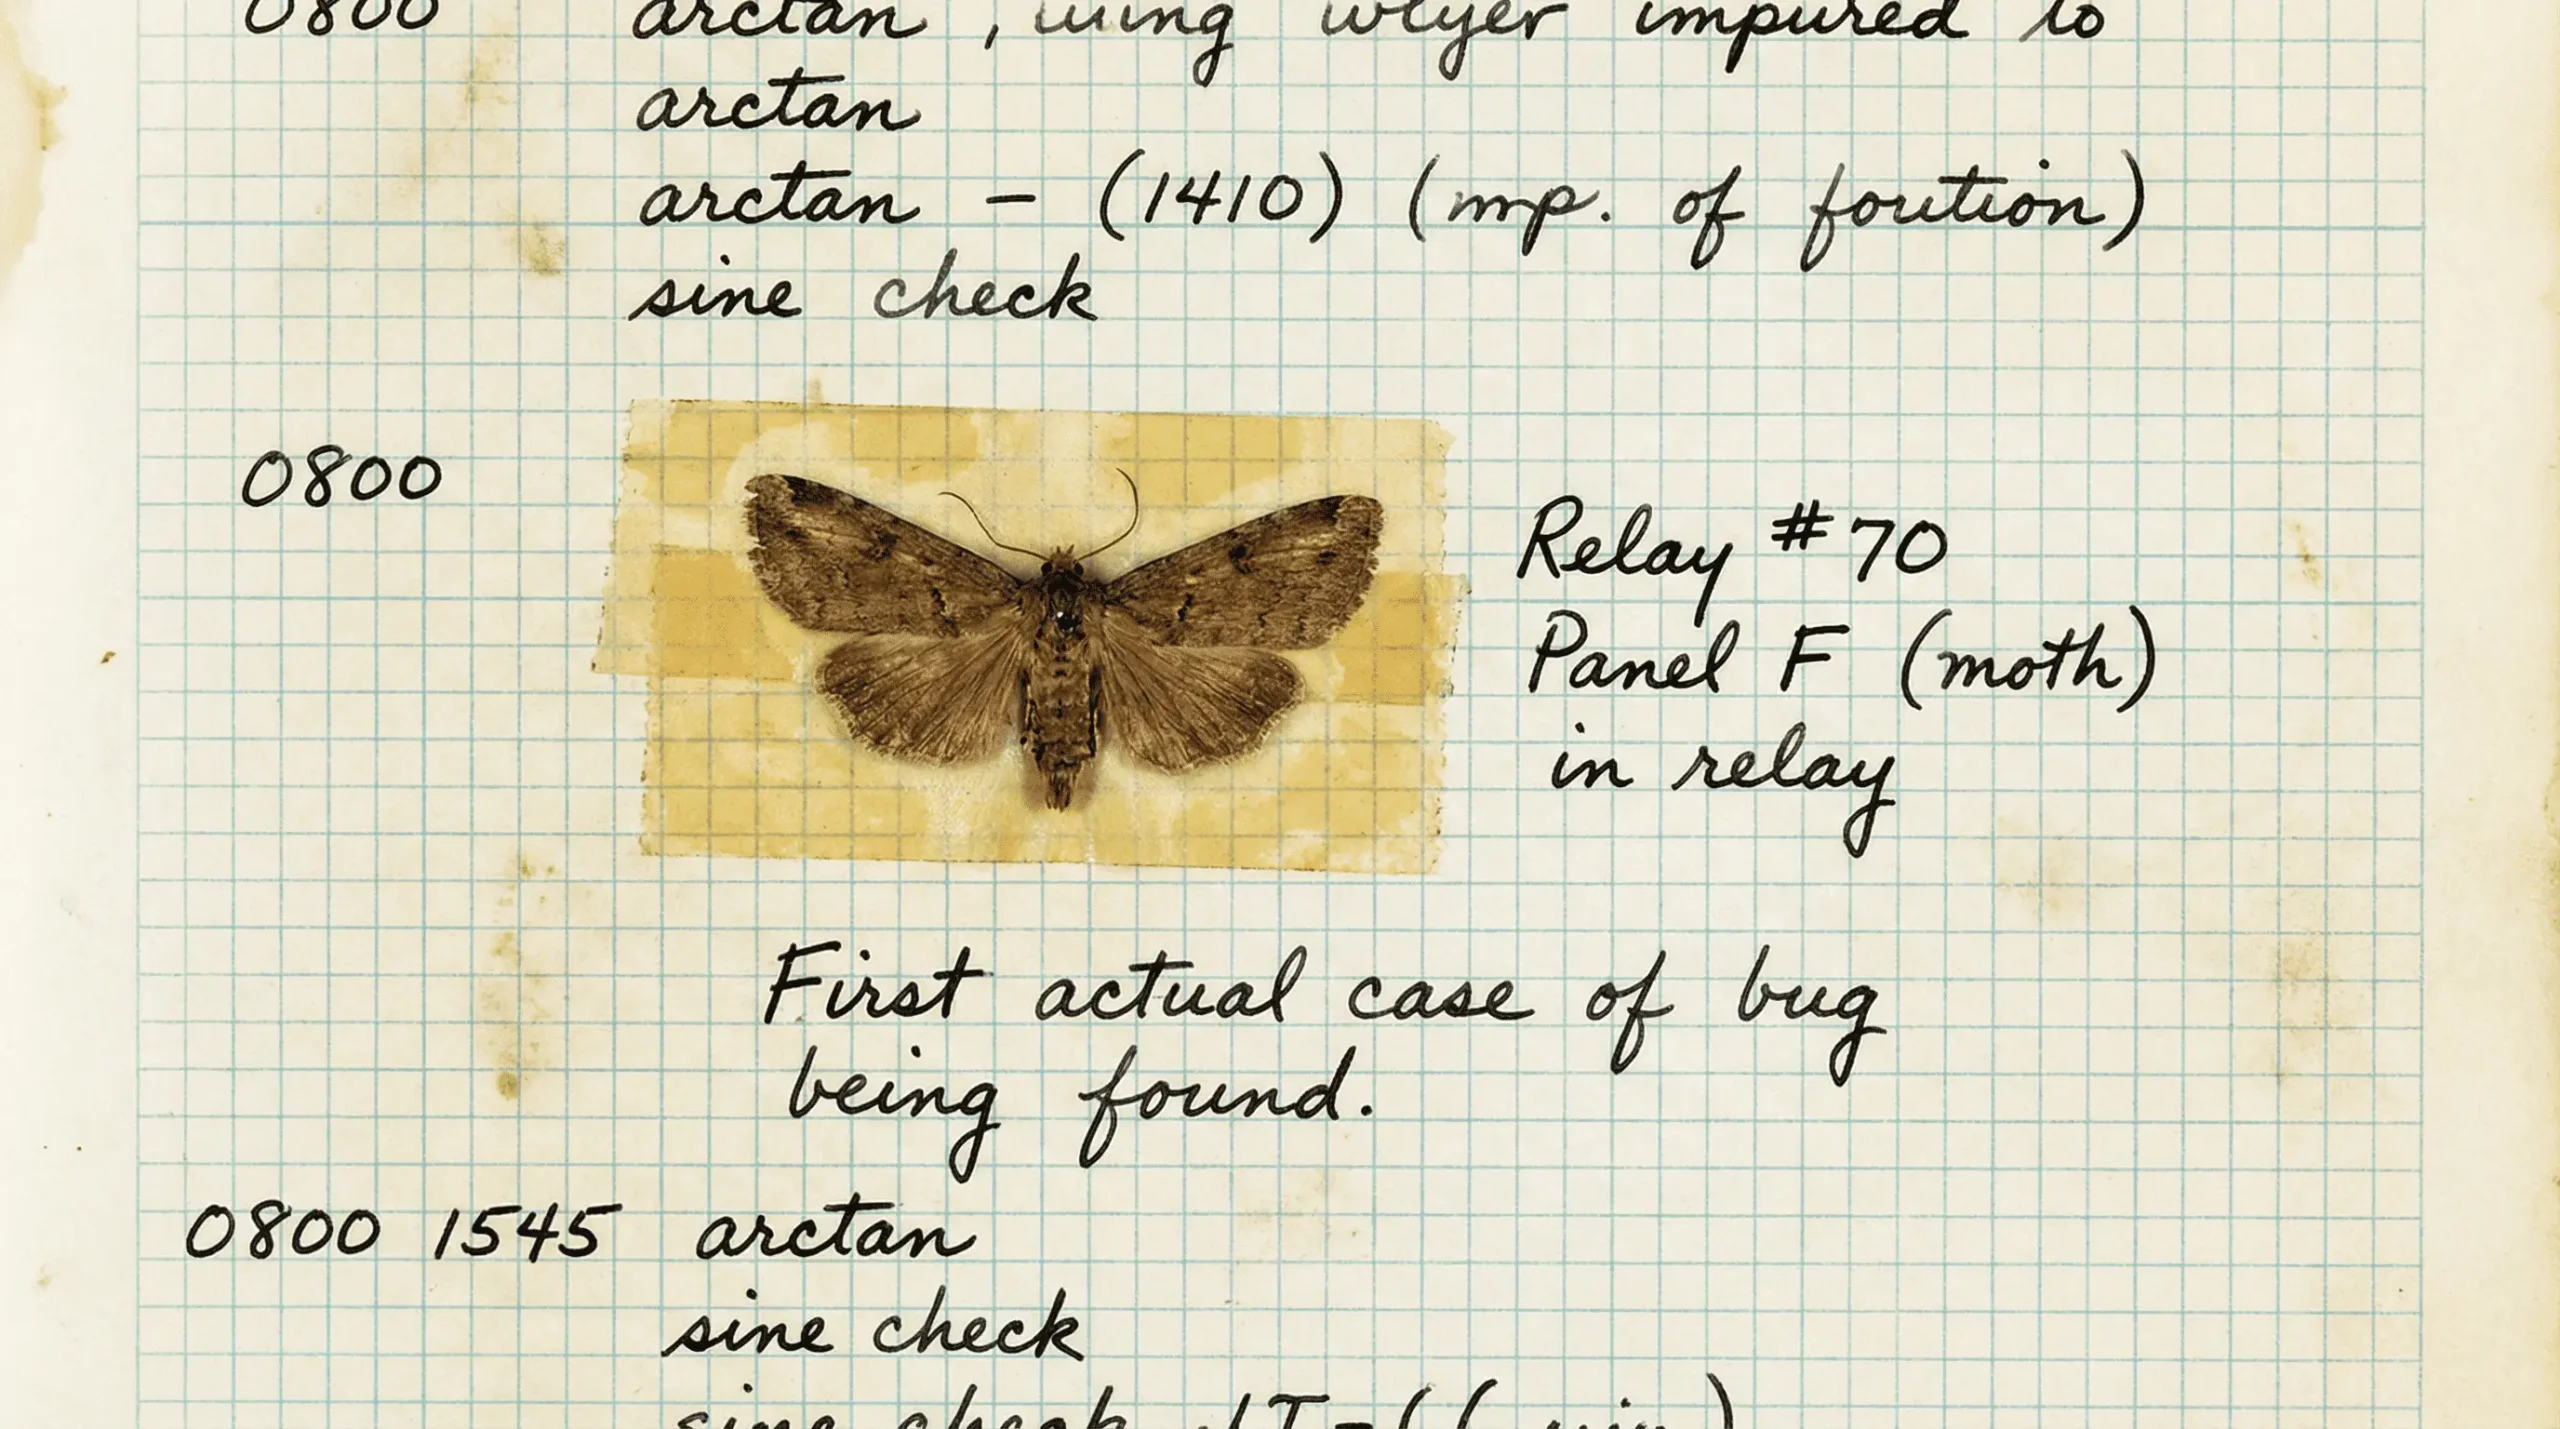 0800 arctan, impured to
arctan
arctan - (1410) (mp. of foution)
sine check
0800
Relay #70
Panel F (moth)
in relay
First actual case of bug
being found.
0800 1545 arctan
sine check
sine check